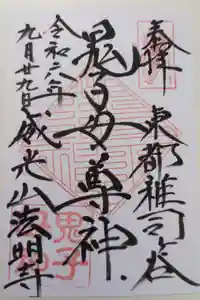 奉拝
東都雑司ヶ谷
鬼子母尊神
令和六年
九月廿九日
威光山法明寺
鬼子
母神